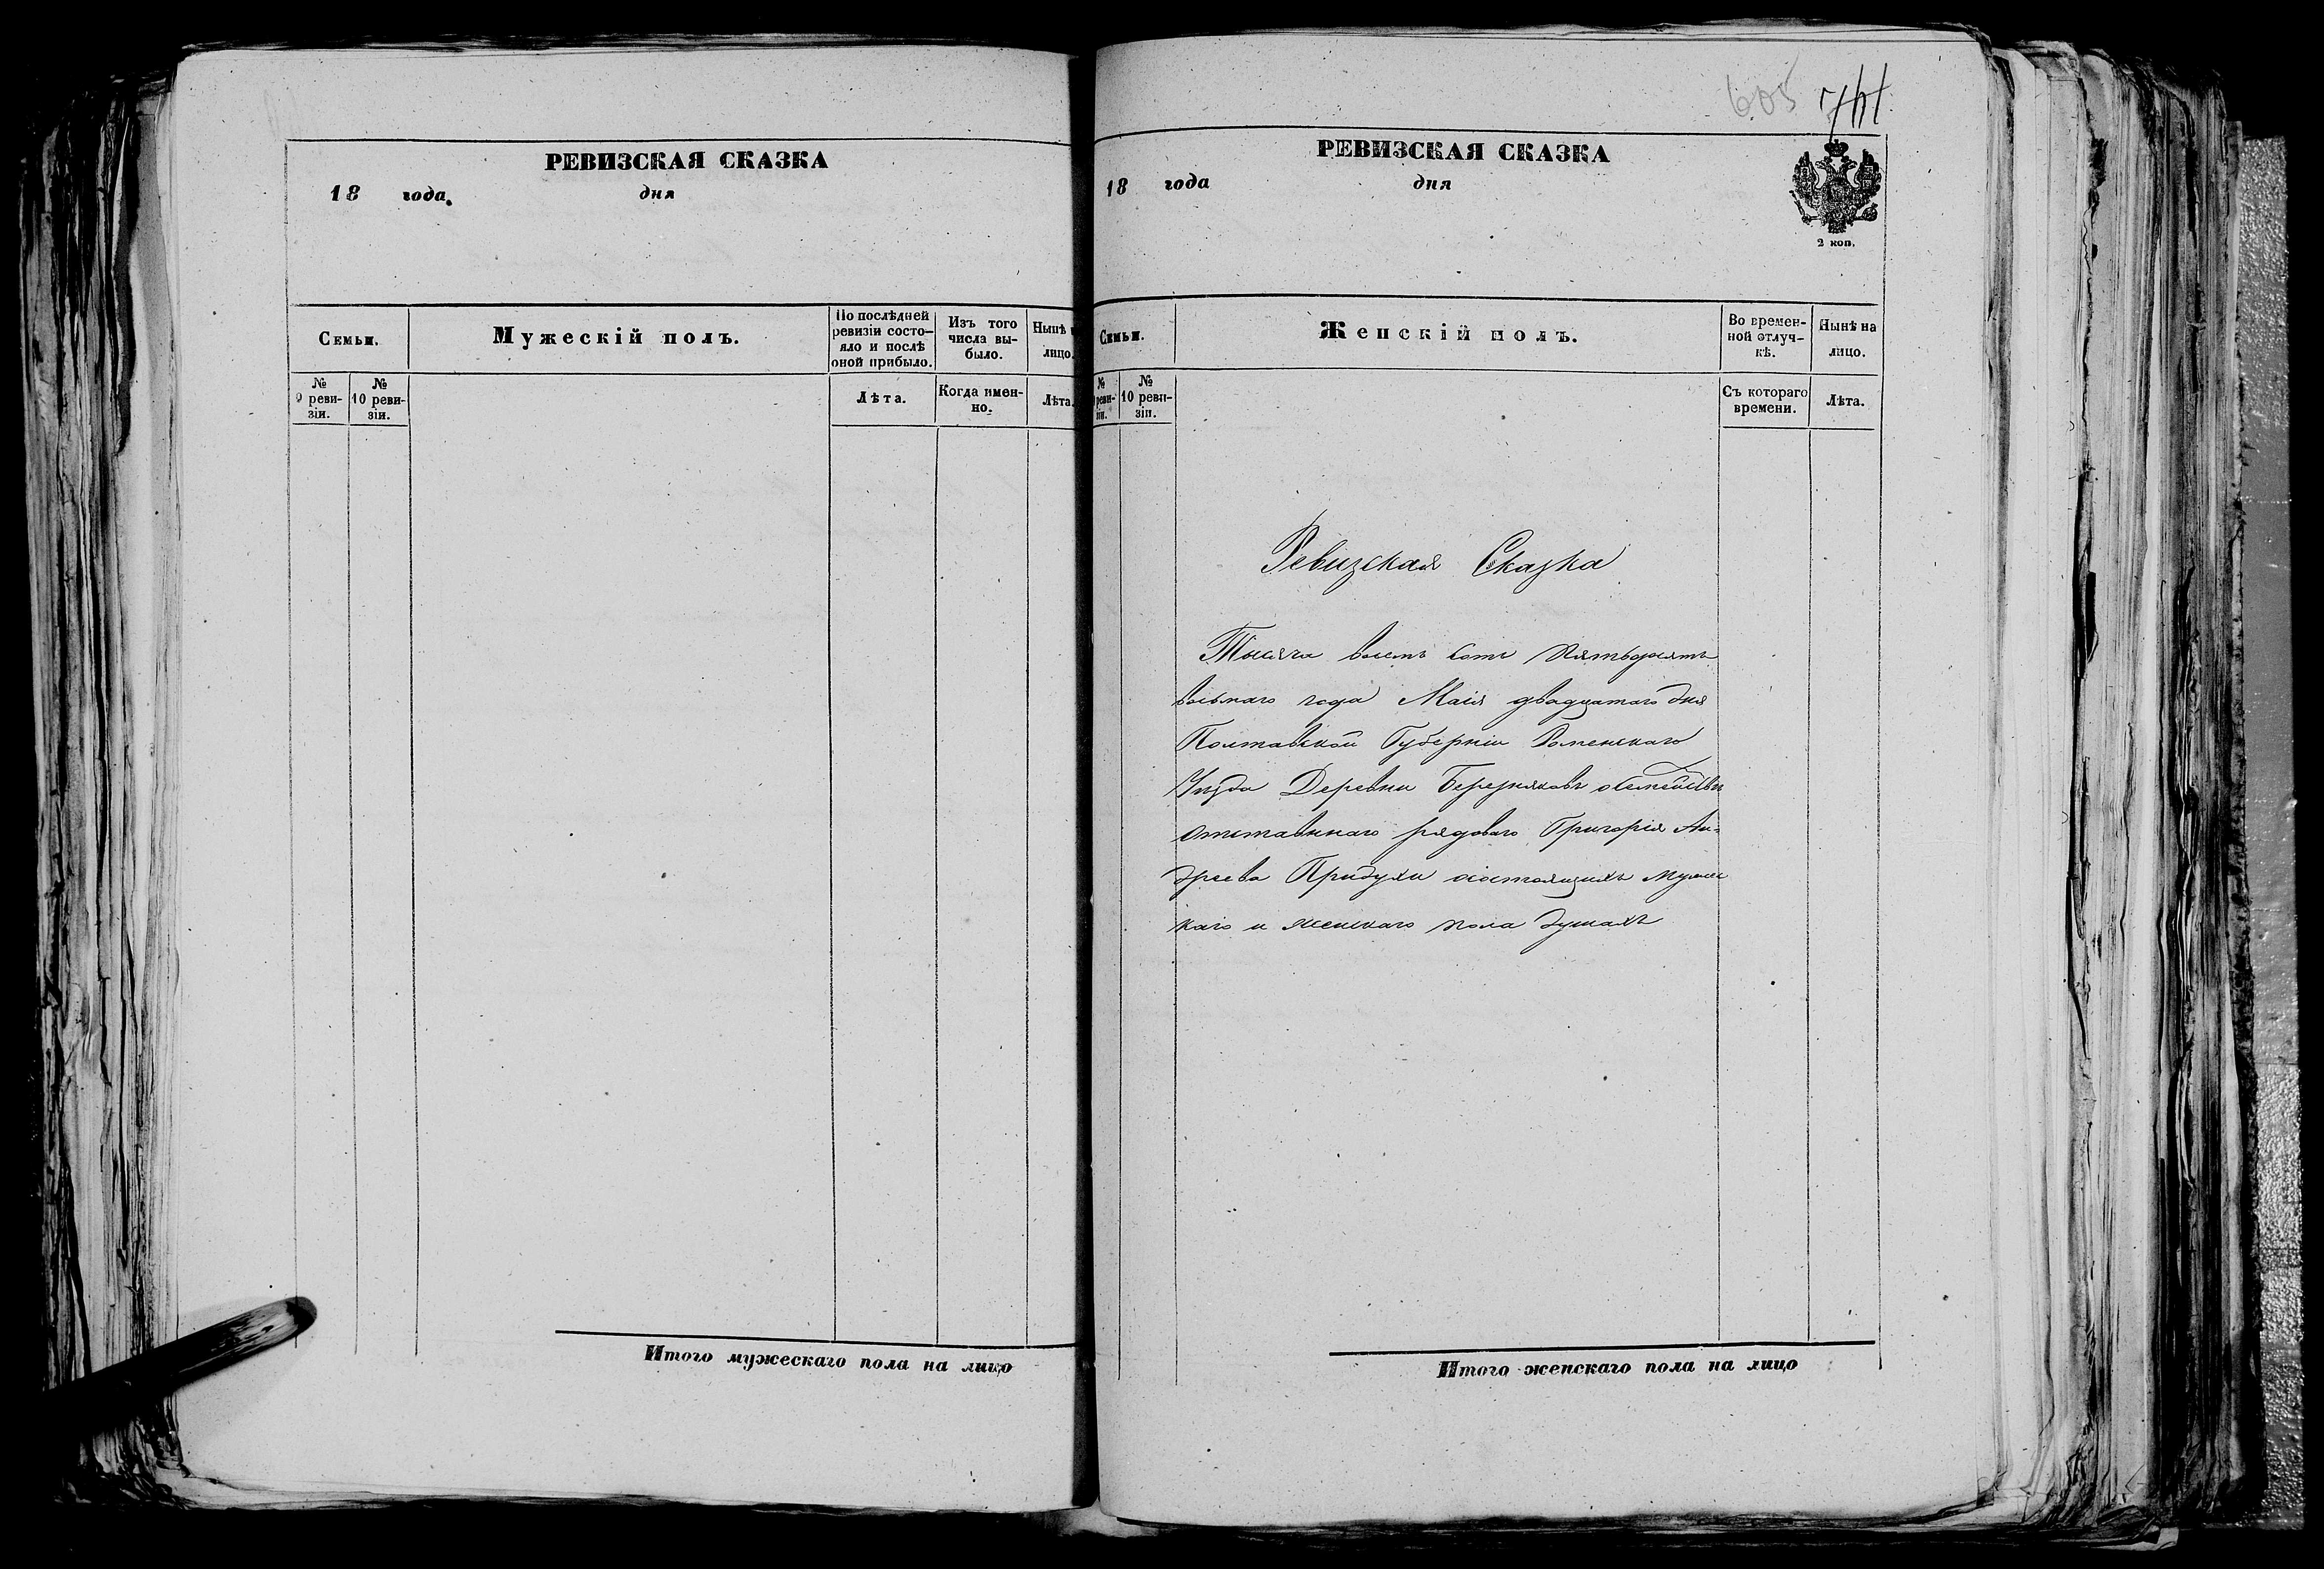 РЕВИЗСКАЯ СКАЗКА
18 года. дня
Семьи.
Мужескій полъ.
По послѣдней
ревизіи состо-
яло и послѣ
оной прибыло.
Изъ того
числа вы-
было.
Нынѣ
лицо.
№
9 реви-
зіи.
№
10 реви-
зіи.
Лѣта.
Когда имен-
но.
Лѣта.
Итого мужескаго пола на лицо
605
РЕВИЗСКАЯ СКАЗКА
18 года дня
2 коп.
Семьи.
Женскій полъ.
Во времен-
ной отлуч-
кѣ.
Нынѣ на
лицо.
№
реви-
зіи.
№
10 реви-
зіи.
Съ котораго
времени.
Лѣта.
Ревизская Сказка
Тысяча восемъ сотъ пятьдесятъ
восьмаго года Маія двадцатаго дня
Полтавской Губерніи Роменскаго
Уезда Деревни Березняковъ о семействѣ
отставннаго рядоваго Григорія Ан-
дреева Придухи состоящихъ мужес
каго и женскаго пола душахъ
Итого женскаго пола на лицо